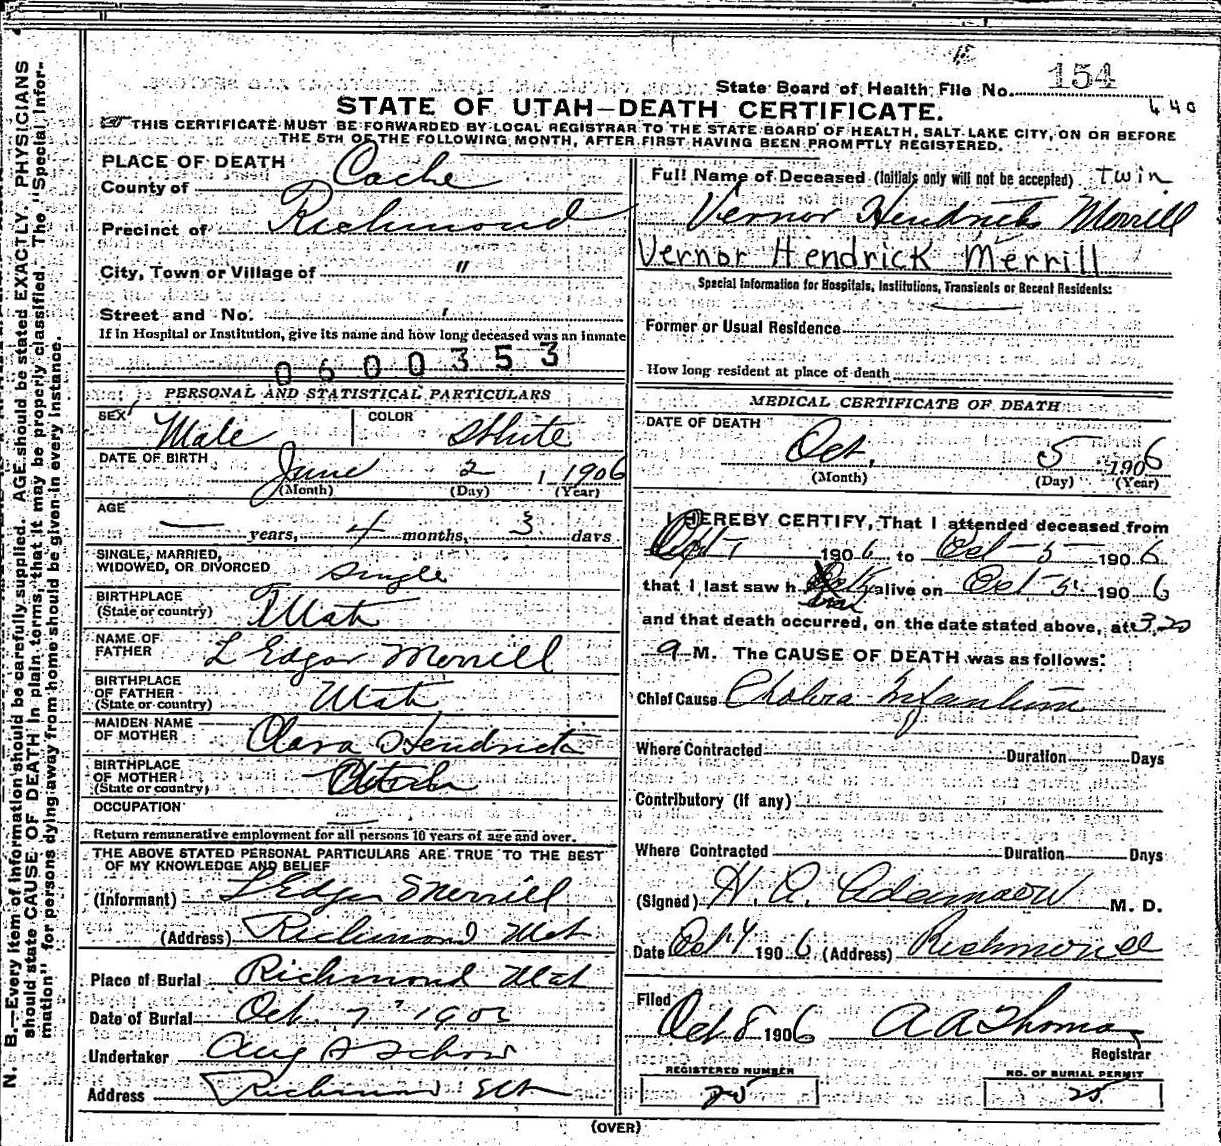 State Board of Health File No. 154
440
STATE OF UTAH—DEATH CERTIFICATE.
THIS CERTIFICATE MUST BE FORWARDED BY LOCAL REGISTRAR TO THE STATE BOARD OF HEALTH, SALT LAKE CITY, ON OR BEFORE
THE 5TH OF THE FOLLOWING MONTH, AFTER FIRST HAVING BEEN PROMPTLY REGISTERED.
PLACE OF DEATH
County of Cache
Precinct of Richmond
City, Town or Village of "
Street and No.
If in Hospital or Institution, give its name and how long deceased was an inmate
0600353
PERSONAL AND STATISTICAL PARTICULARS
SEX Male COLOR White
DATE OF BIRTH June 2 1906
(Month) (Day) (Year)
AGE — years, 4 months, 3 days
SINGLE, MARRIED,
WIDOWED, OR DIVORCED Single
BIRTHPLACE
(State or country) Utah
NAME OF
FATHER L Edgar Merrill
BIRTHPLACE
OF FATHER
(State or country) Utah
MAIDEN NAME
OF MOTHER Clara Hendricks
BIRTHPLACE
OF MOTHER
(State or country)
OCCUPATION
Return remunerative employment for all persons 10 years of age and over.
THE ABOVE STATED PERSONAL PARTICULARS ARE TRUE TO THE BEST
OF MY KNOWLEDGE AND BELIEF
(Informant) L Edgar Merrill
(Address) Richmond Utah
Place of Burial Richmond Utah
Date of Burial Oct. 7 1906
Undertaker Aug
Address Richmond Utah
Full Name of Deceased (Initials only will not be accepted) Twin
Vernor Hendricks Merrill
Vernor Hendrick Merrill
Special Information for Hospitals, Institutions, Transients or Recent Residents:
Former or Usual Residence
How long resident at place of death
MEDICAL CERTIFICATE OF DEATH
DATE OF DEATH
Oct. 5 1906
(Month) (Day) (Year)
I HEREBY CERTIFY, That I attended deceased from
1906 to Oct-5- 1906
that I last saw h alive on Oct 5 1906
and that death occurred, on the date stated above, at 3.20
a M. The CAUSE OF DEATH was as follows:
Chief Cause Cholera Infantum
Where Contracted Duration Days
Contributory (if any)
Where Contracted Duration Days
(Signed) H. A. Adamson M. D.
Date Oct 1906 (Address) Richmond
Filed
Oct 8 1906 A A Thomas
Registrar
REGISTERED NUMBER
25
NO. OF BURIAL PERMIT
25
(OVER)
N. B.—Every item of information should be carefully supplied. AGE should be stated EXACTLY. PHYSICIANS
should state CAUSE OF DEATH in plain terms, that it may be properly classified. The "Special Infor-
mation" for persons dying away from home should be given in every instance.